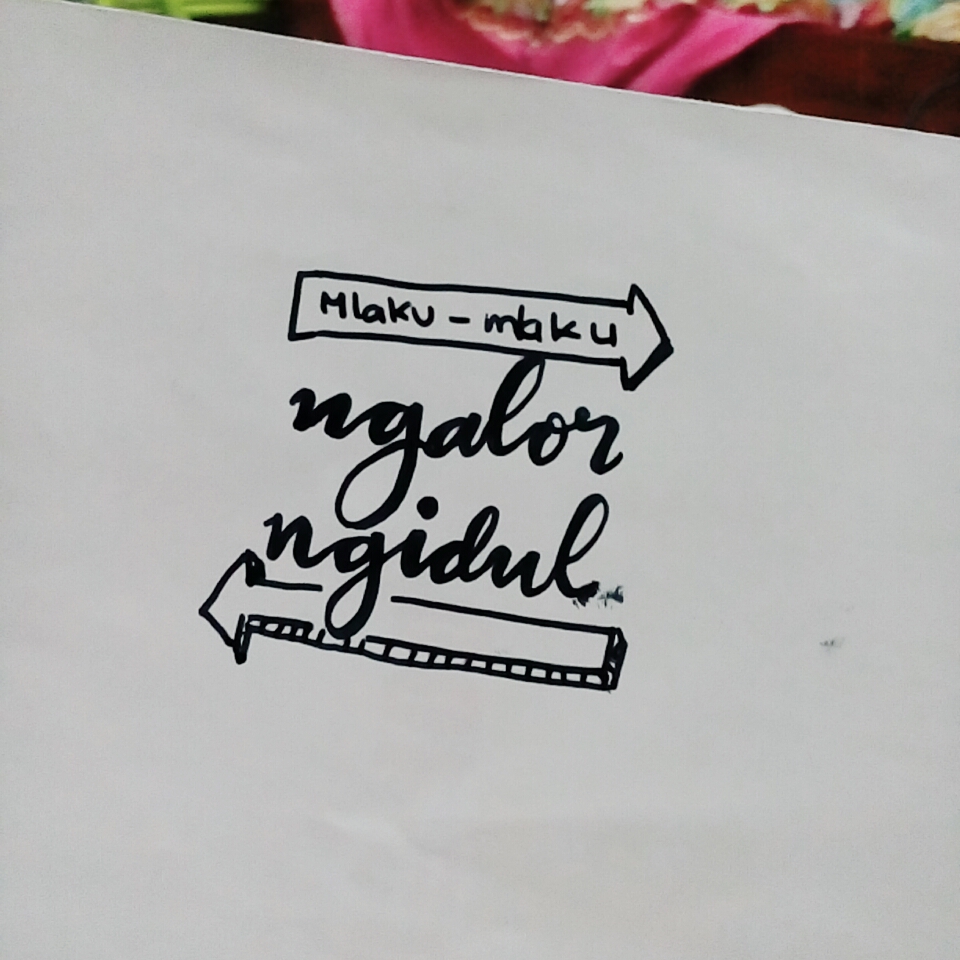 Mlaku - mlaku
ngalor
ngidul